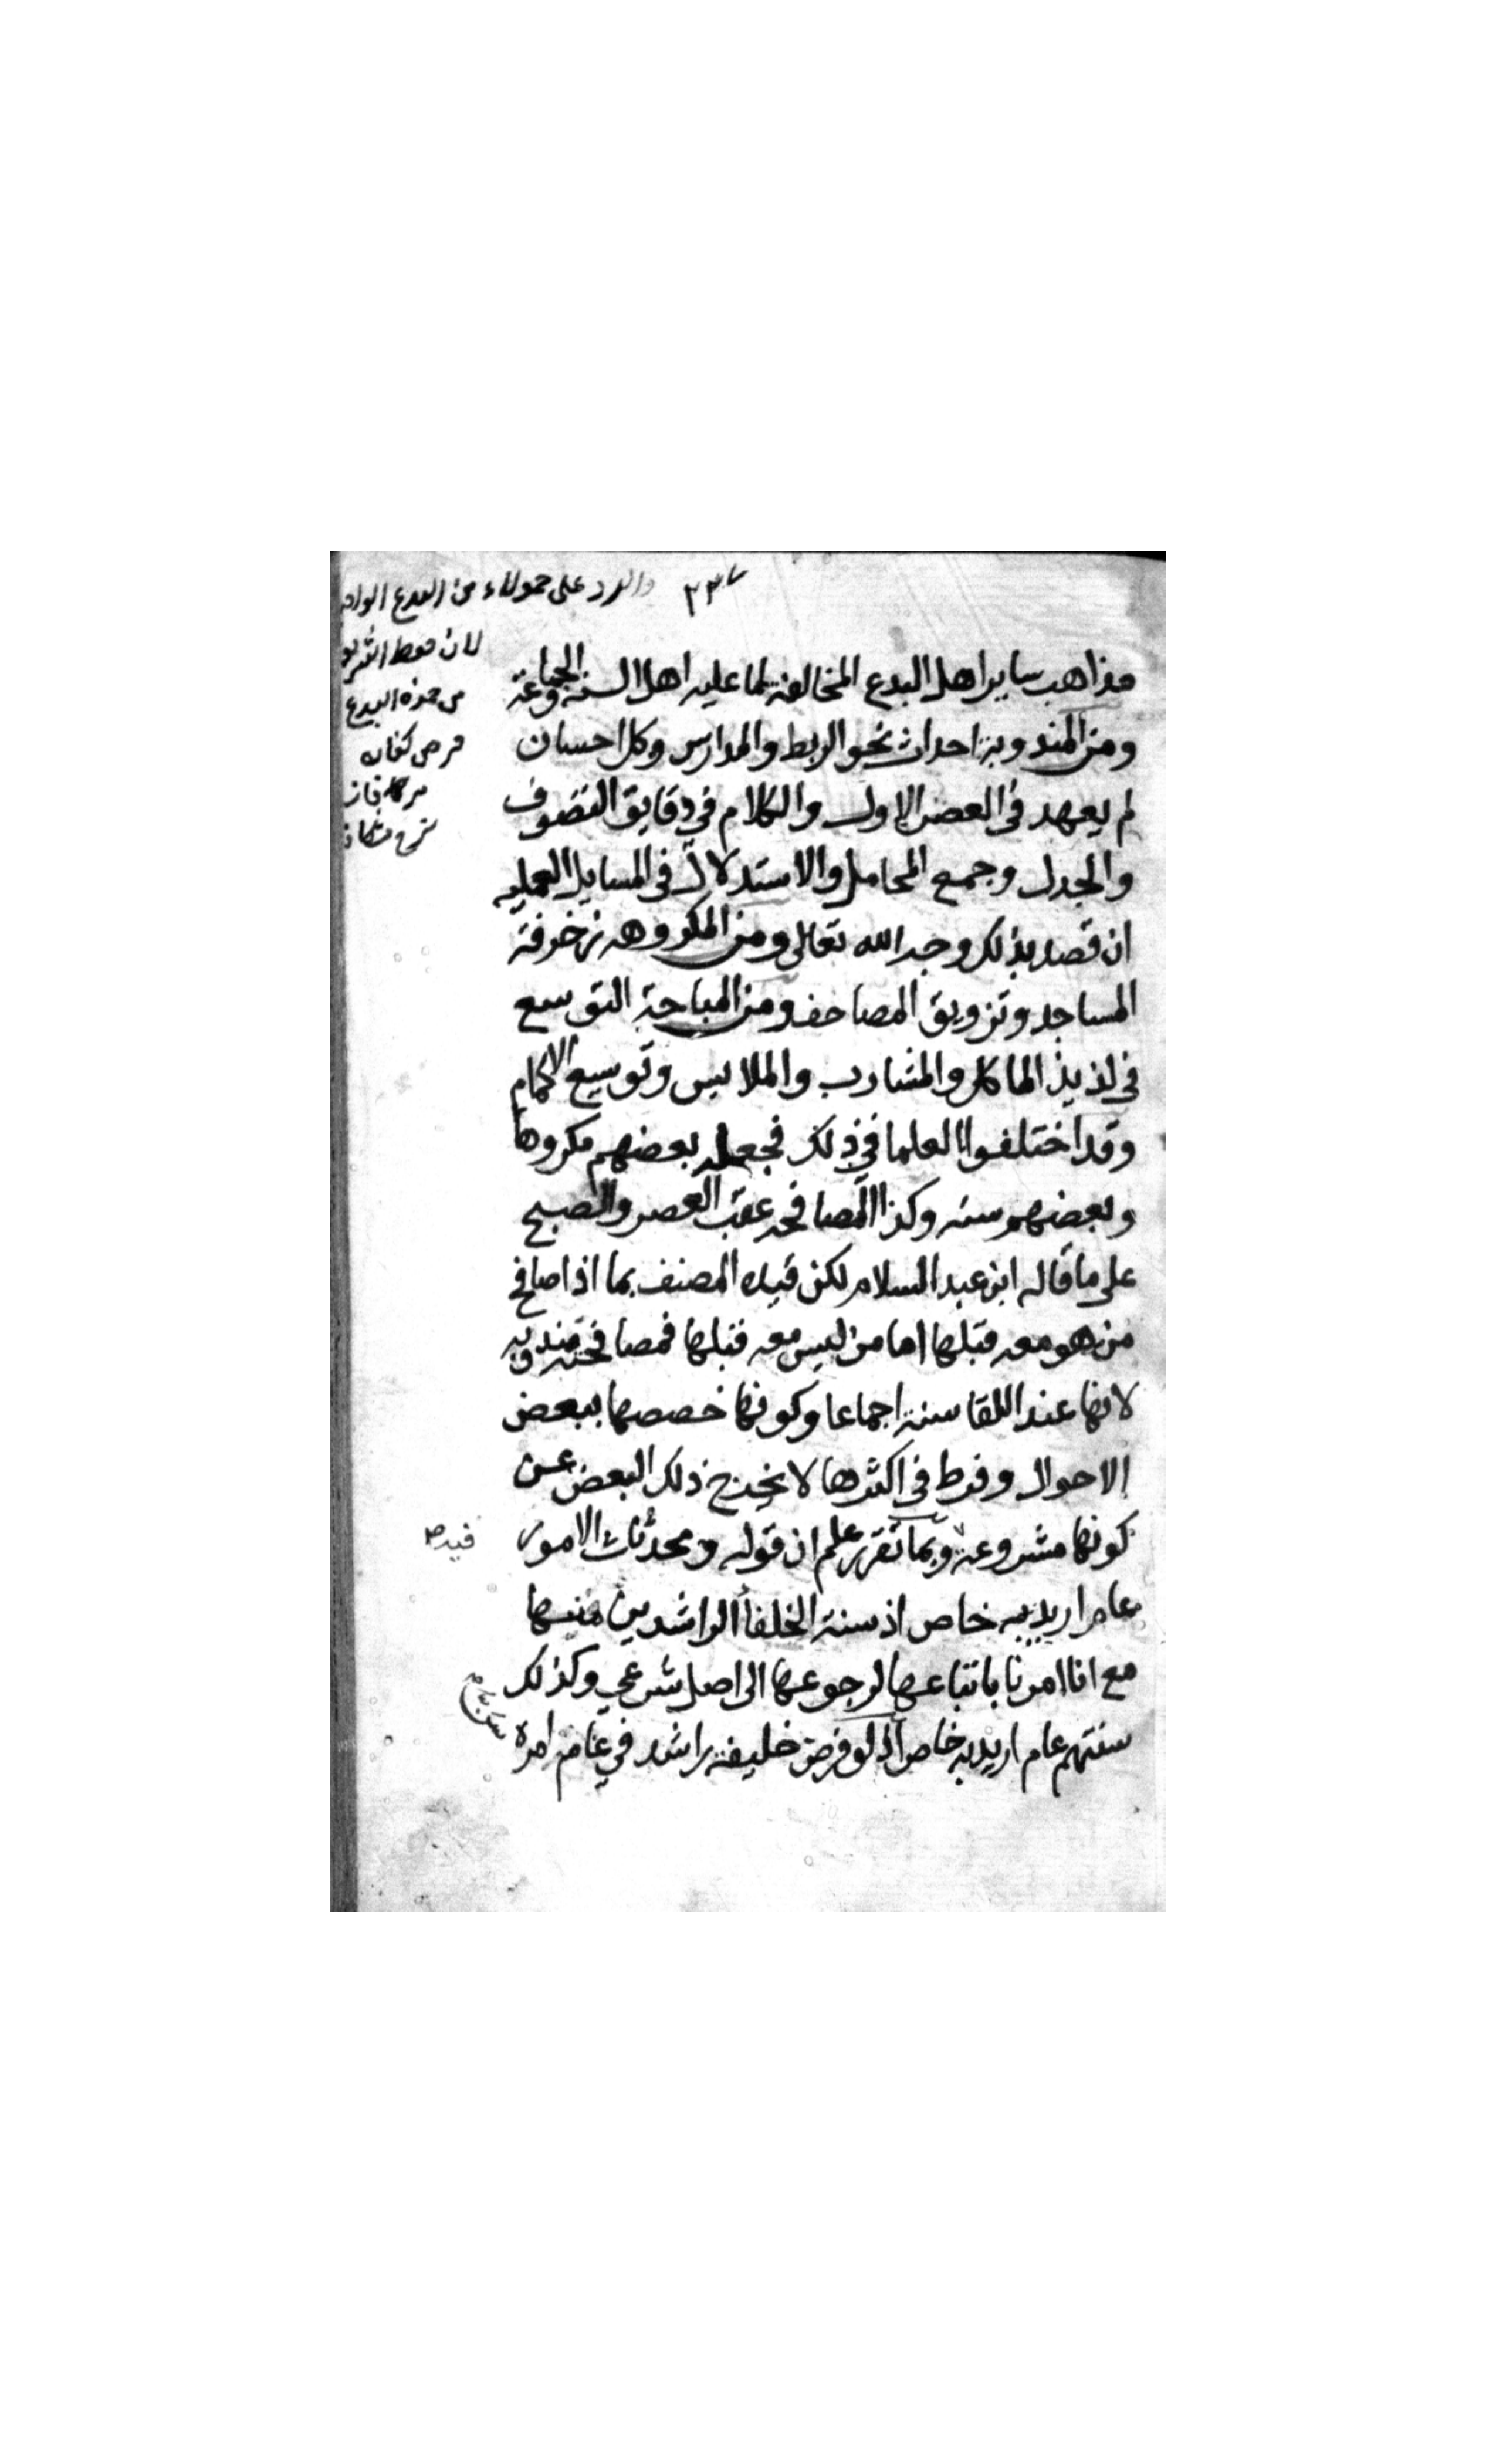 ٢٣٧
والرد على هولاء من البدع الواجبة
لان حفظ الشريعة
من هذه البدع
فرض كفاية
مذاهب ساير اهل البدع المخالفة لما عليه اهل السنة والجماعة
ومن المندوبة احداث نحو الربط والمدارس وكل احسان
لم يعهد في العصر الاول والكلام في دقايق التصوف
والجدل وجمع المحامل والاستدلال في المسايل العملية
ان قصد بذلك وجه الله تعالى ومن المكروهه زخرفة
المساجد وتزويق المصاحف ومن المباحة التوسع
في لذيذ الماكل والمشارب والملابس وتوسيع الاكمام
وقد اختلفوا العلما في ذلك فجعله بعضهم مكروها
وبعضهم سنه وكذا المصافحه عقب العصر والصبح
على ما قاله ابن عبد السلام لكن قيده المصنف بما اذا صافح
من هو معه قبلها اما من ليس معه قبلها فمصافحته مندوبه
لانها عند اللقا سنة اجماعا وكونها خصصها ببعض
الاحوال وفرط في اكثرها لا يخرج ذلك البعض عن
كونها مشروعة وبما تقرر علم ان قوله ومحدثات الامور
عام اريد به خاص اذ سنة الخلفا الراشدين منها
مع انا امرنا باتباعها لرجوعها الى اصل شرعي وكذلك
سنتهم عام اريد به خاص اذ لو فرض خليفة راشد في عامة امره
فيه